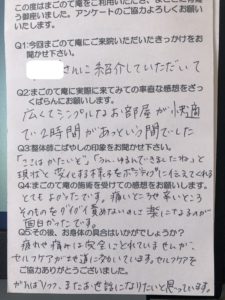 この度はまごのて庵をご利用いただき、まことに有難
う御座いました。アンケートのご協力よろしくお願い
いたします。
Q1:今回まごのて庵にご来院いただいたきっかけをお
聞かせ下さい。
さんに紹介していただいて
Q2まごのて庵に実際に来てみての率直な感想をざっ
くばらんにお願いします。
広くてシンプルなお部屋が快適
で、2時間があっという間でした
Q3:整体師こばやしの印象をお聞かせ下さい。
「ここはかたいと」「うん、ゆるんできましたね」と
現状と変化する様子をポジティブに伝えてくれる
Q4まごのて庵の施術を受けての感想をお願いします。
とてもよかったです。痛いところや辛いところ
そのものをグイグイ責めないのに楽になるのが
面白かったです。
Q5その後、お身体の具合はいかがでしょうか?
疲れや痛みは完全にとれていませんが、
セルフケアが地道に効いています。セルフケアを
ご協力ありがとうございました。
がんばりつつ、またお世話になりたいと思っています。